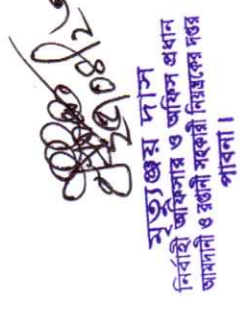 ২৭/০৪/২
মৃত্যুঞ্জয় দাস
নির্বাহী অফিসার ও অফিস প্রধান
আমদানী ও রপ্তানী সহকারী নিয়ন্ত্রকের দপ্তর
পাবনা।